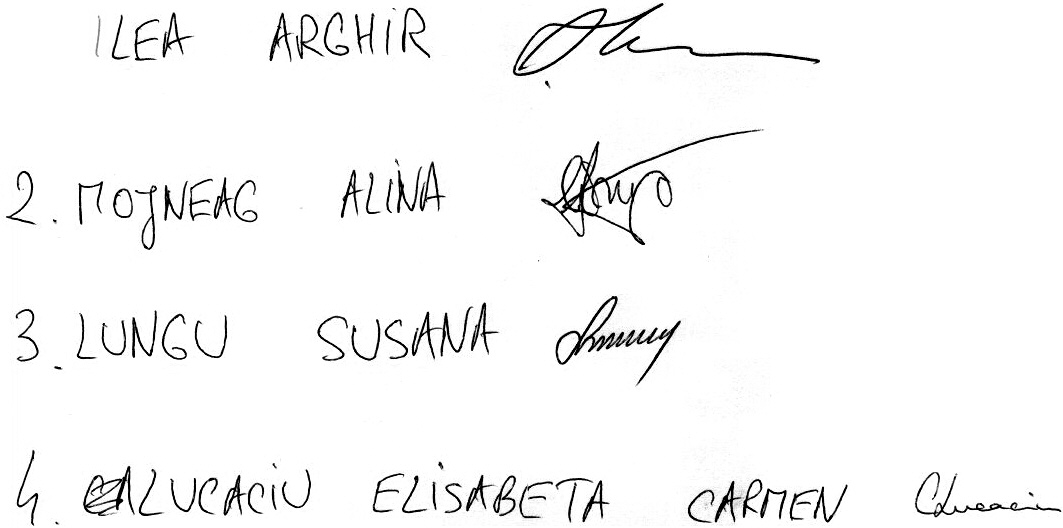 ILEA ARGHIR
2. MOJNEAG ALINA
3. LUNGU SUSANA
4. LUCACIU ELISABETA CARMEN CLucaciu